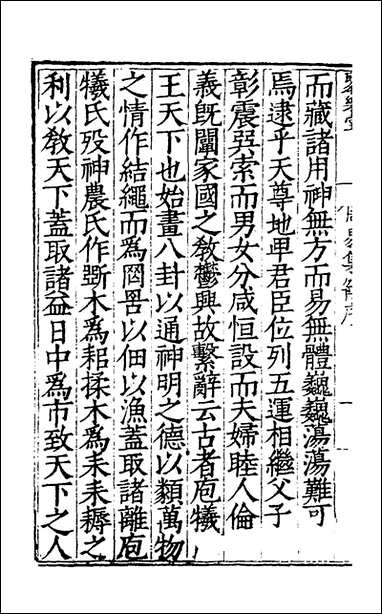 聚樂堂 周易集解序
而藏諸用神無方而易無體巍巍蕩蕩難可
焉逮乎天尊地卑君臣位列五運相繼父子
彰震巽索而男女分咸恒設而夫婦睦人倫
義旣闡家國之教鬱興故繫辭云古者庖犧
王天下也始畫八卦以通神明之德以類萬物
之情作結繩而爲罔罟以佃以漁蓋取諸離庖
犧氏歿神農氏作斵木爲耜揉木爲耒耒耨之
利以教天下蓋取諸益日中爲市致天下之人